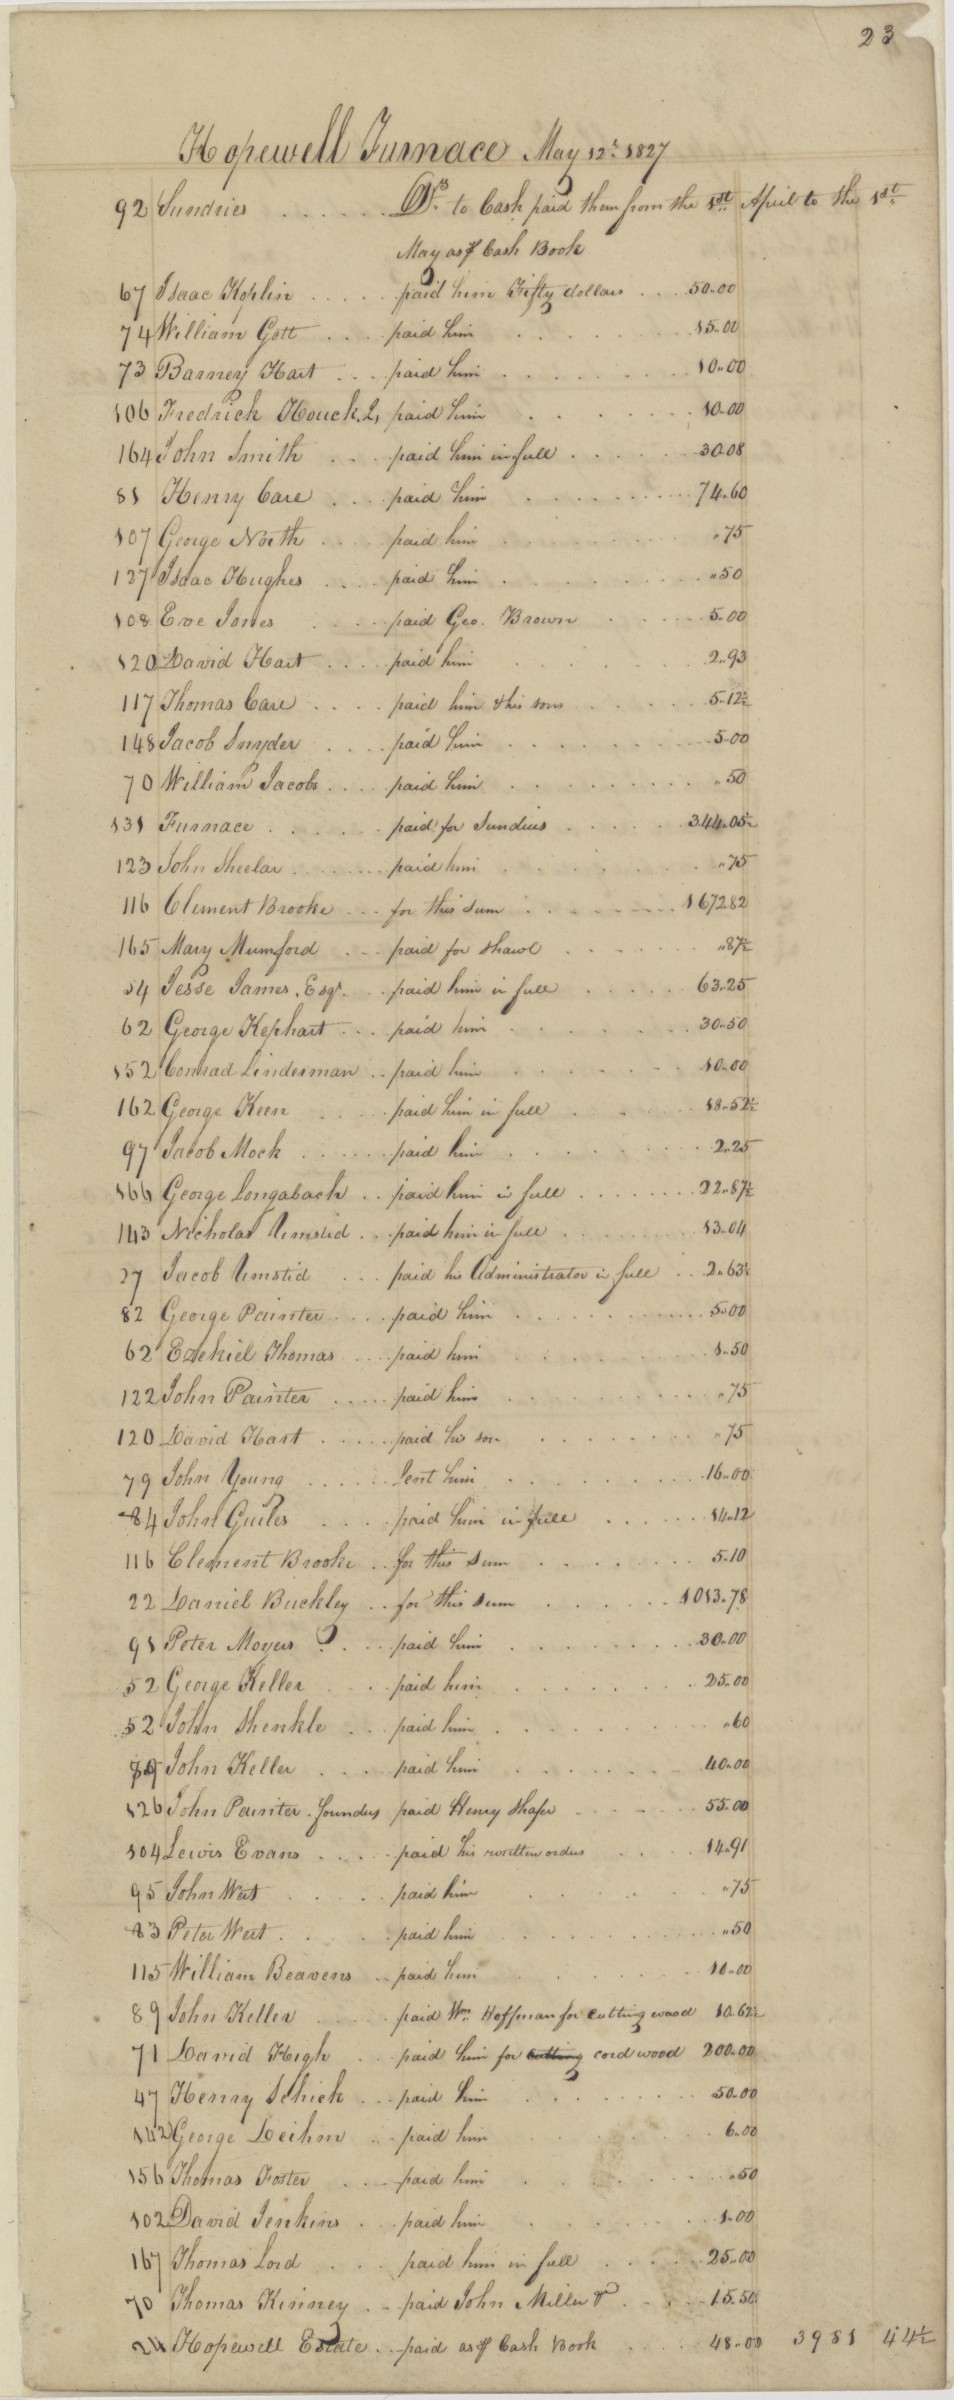 23
Hopewell Furnace May 12th 1827
92 Sundries . . . . . . Drs to Cash paid them from the 1st April to the 1st
May as pr Cash Book
67 Isaac Koplin . . . . . paid him Fifty dollars . . . 50.00
74 William Gott . . . . paid him . . . . . . 15.00
73 Barney Hart . . . paid him . . . . . . . . 10.00
106 Fredrick Houck, paid him . . . . . . . 10.00
164 John Smith . . . paid him in full . . . . . . 30.08
81 Henry Care . . . paid him . . . . . . . . 74.60
107 George North . . . . paid him . . . . . . . . "75
127 Isaac Hughes . . . . paid him . . . . . . . . "50
108 Eve Jones . . . . paid Geo. Brown . . . . . 5.00
120 David Hart . . . . paid him . . . . . . 2.93
117 Thomas Care . . . . paid him & his sons . . . . . . 5.12½
148 Jacob Snyder . . . . paid him . . . . . . . . 5.00
70 William Jacobs . . . . paid him . . . . . . . . . "50
131 Furnace . . . . . . paid for Sundries . . . . . 344.05½
123 John Sheelar . . . . . . paid him . . . . . . . "75
116 Clement Brooke . . . for this sum . . . . . . . 1672.82
165 Mary Mumford . . . paid for shawl . . . . . . "87½
54 Jesse James, Esqr. . . paid him in full . . . . . 63.25
62 George Kephart . . . paid him . . . . . . . 30.50
152 Conrad Linderman . . paid him . . . . . . . 10.00
162 George Keen . . . . paid him in full . . . . 18.52½
97 Jacob Mock . . . . . . paid him . . . . . . . . 2.25
166 George Longabach . . paid him in full . . . . . . . . 22.87½
143 Nicholas Umstid . . . paid him in full . . . . . . . . 13.04
27 Jacob Umstid . . . paid his Administrator in full . . 2.63½
82 George Painter . . . . paid him . . . . . . . . . 5.00
62 Ezekiel Thomas . . . . paid him . . . . . . 1.50
122 John Painter . . . . . paid him . . . . . . . . . "75
120 David Hart . . . . . paid his son . . . . . . . "75
79 John Young . . . . . . lent him . . . . . . . . 16.00
84 John Guiles . . . . paid him in full . . . . . . 14.12
116 Clement Brooke . . for this sum . . . . . . . 5.10
22 Daniel Buckley . . for this sum . . . . . . 1013.78
91 Peter Moyers . . . paid him . . . . . . . . 30.00
52 George Keller . . . . paid him . . . . . . . . 25.00
52 John Shenkle . . . paid him . . . . . . . . "60
89 John Keller . . . . paid him . . . . . . . 40.00
126 John Painter. founder paid Henry Shafer . . . . . . 55.00
104 Lewis Evans . . . . . paid his written orders . . . . 14.91
95 John Wert . . . . . paid him . . . . . . "75
83 Peter Wert . . . . . paid him . . . . . . . . . "50
115 William Beavens . . paid him . . . . . . 10.00
89 John Keller . . . . paid Wm. Hoffman for cutting wood 10.62½
71 David High . . . paid him for cutting cord wood 200.00
47 Henry Schick . . . paid him . . . . . . . 50.00
142 George Deihm . . . paid him . . . . . . . 6.00
156 Thomas Foster . . . . paid him . . . . . . . "50
102 David Jenkins . . . paid him . . . . . . . 1.00
167 Thomas Lord . . . . paid him in full . . . . . 25.00
70 Thomas Kinney . . paid John Miller . . . . 15.50
24 Hopewell Estate . . paid as pr Cash Book . . . . 48.00 3981 44½